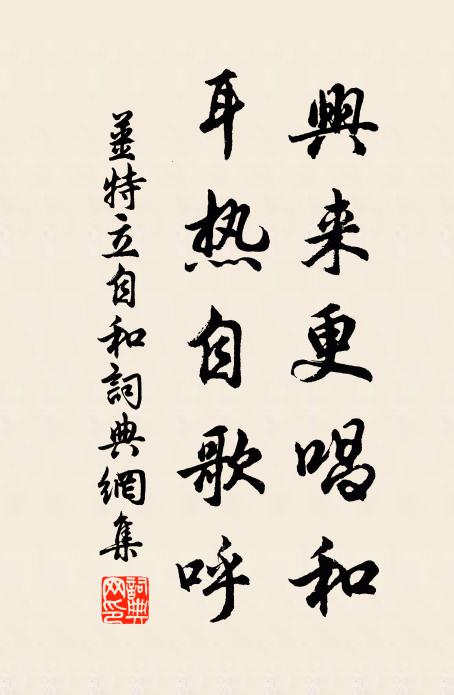 興来更唱和
耳热自歌呼
姜特立自和詞典網集
詞典网印